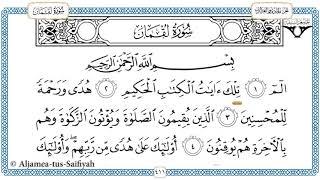 سُورَةُ لُقْمَانَ
بِسْمِ ٱللَّهِ ٱلرَّحْمَٰنِ ٱلرَّحِيمِ
الٓمٓ ١ تِلْكَ ءَايَٰتُ ٱلْكِتَٰبِ ٱلْحَكِيمِ ٢ هُدًى وَرَحْمَةً
لِّلْمُحْسِنِينَ ٣ ٱلَّذِينَ يُقِيمُونَ ٱلصَّلَوٰةَ وَيُؤْتُونَ ٱلزَّكَوٰةَ وَهُم
بِٱلْءَاخِرَةِ هُمْ يُوقِنُونَ ٤ أُو۟لَٰٓئِكَ عَلَىٰ هُدًى مِّن رَّبِّهِمْ ۖ وَأُو۟لَٰٓئِكَ
© Aljamea-tus-Saifiyah
٤١١